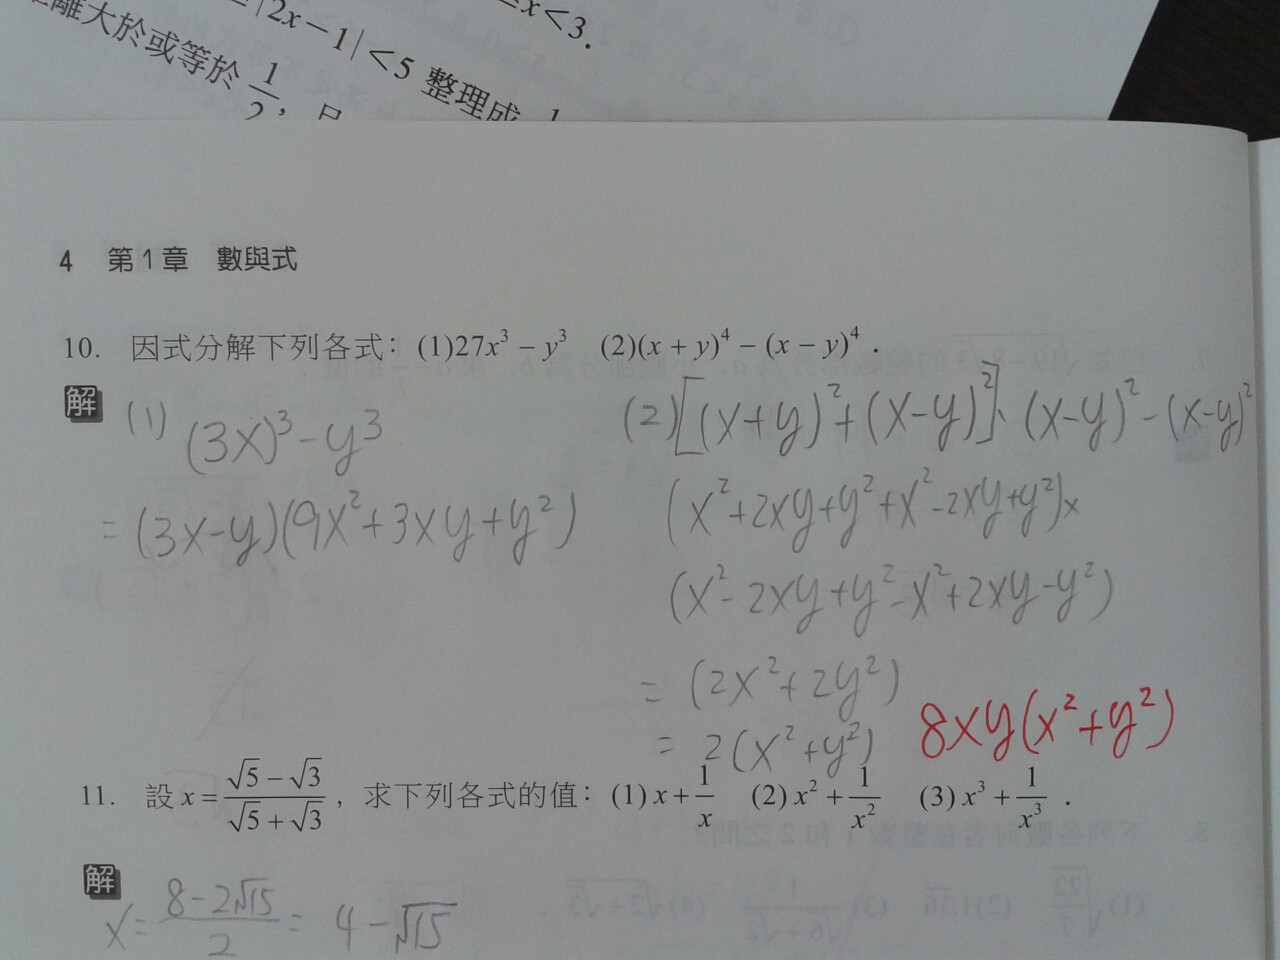 x<3.
|2x-1|<5 整理成 1
離大於或等於 1/2, 且
4 第1章 數與式
10. 因式分解下列各式：(1)27x³ − y³ (2)(x + y)⁴ − (x − y)⁴．
解
(1) (3x)³-y³
=(3x-y)(9x²+3xy+y²)
(2)[(x+y)²+(x-y)²]·(x-y)²-(x-y)²
(x²+2xy+y²+x²-2xy+y²)×
(x²-2xy+y²-x²+2xy-y²)
=(2x²+2y²)
=2(x²+y²) 8xy(x²+y²)
11. 設 x=(√5−√3)/(√5+√3)，求下列各式的值：(1) x+1/x (2) x²+1/x² (3) x³+1/x³．
解
x=(8-2√15)/2=4-√15